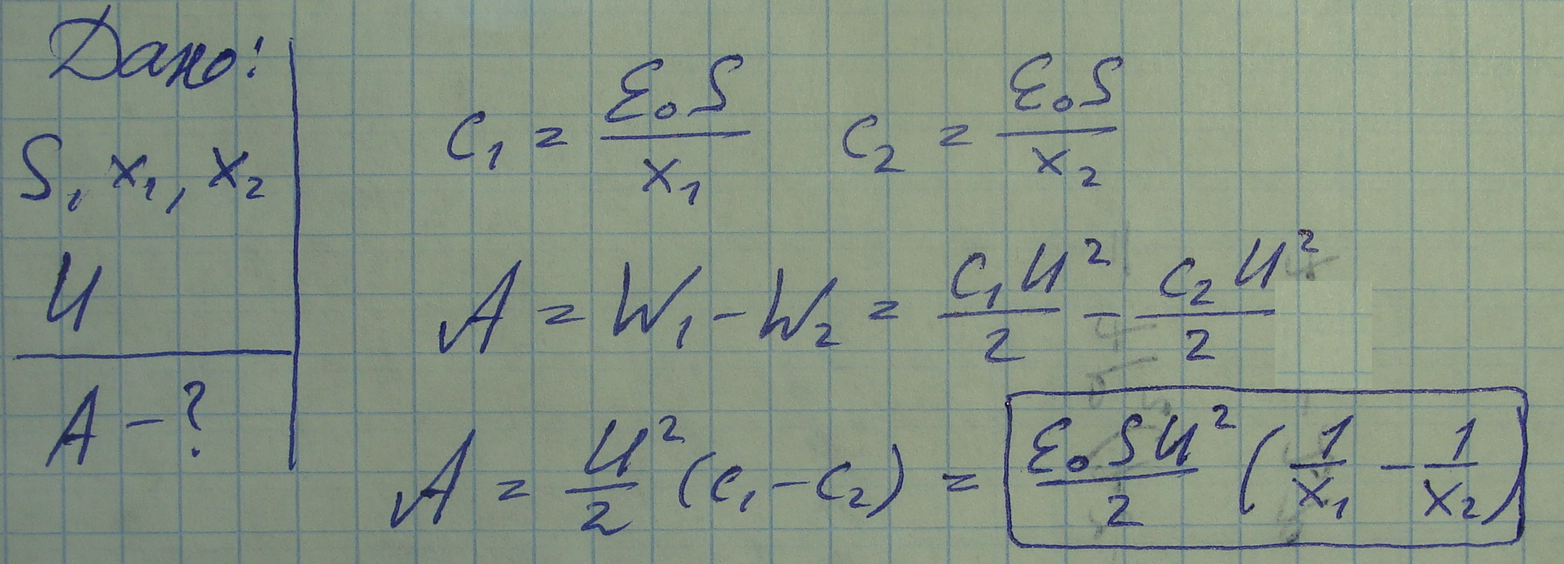 Дано:
S, x₁, x₂
U
A - ?
C₁ = ε₀S / x₁ C₂ = ε₀S / x₂
A = W₁ - W₂ = C₁U² / 2 - C₂U² / 2
A = U² / 2 (C₁ - C₂) = ε₀SU² / 2 (1 / x₁ - 1 / x₂)